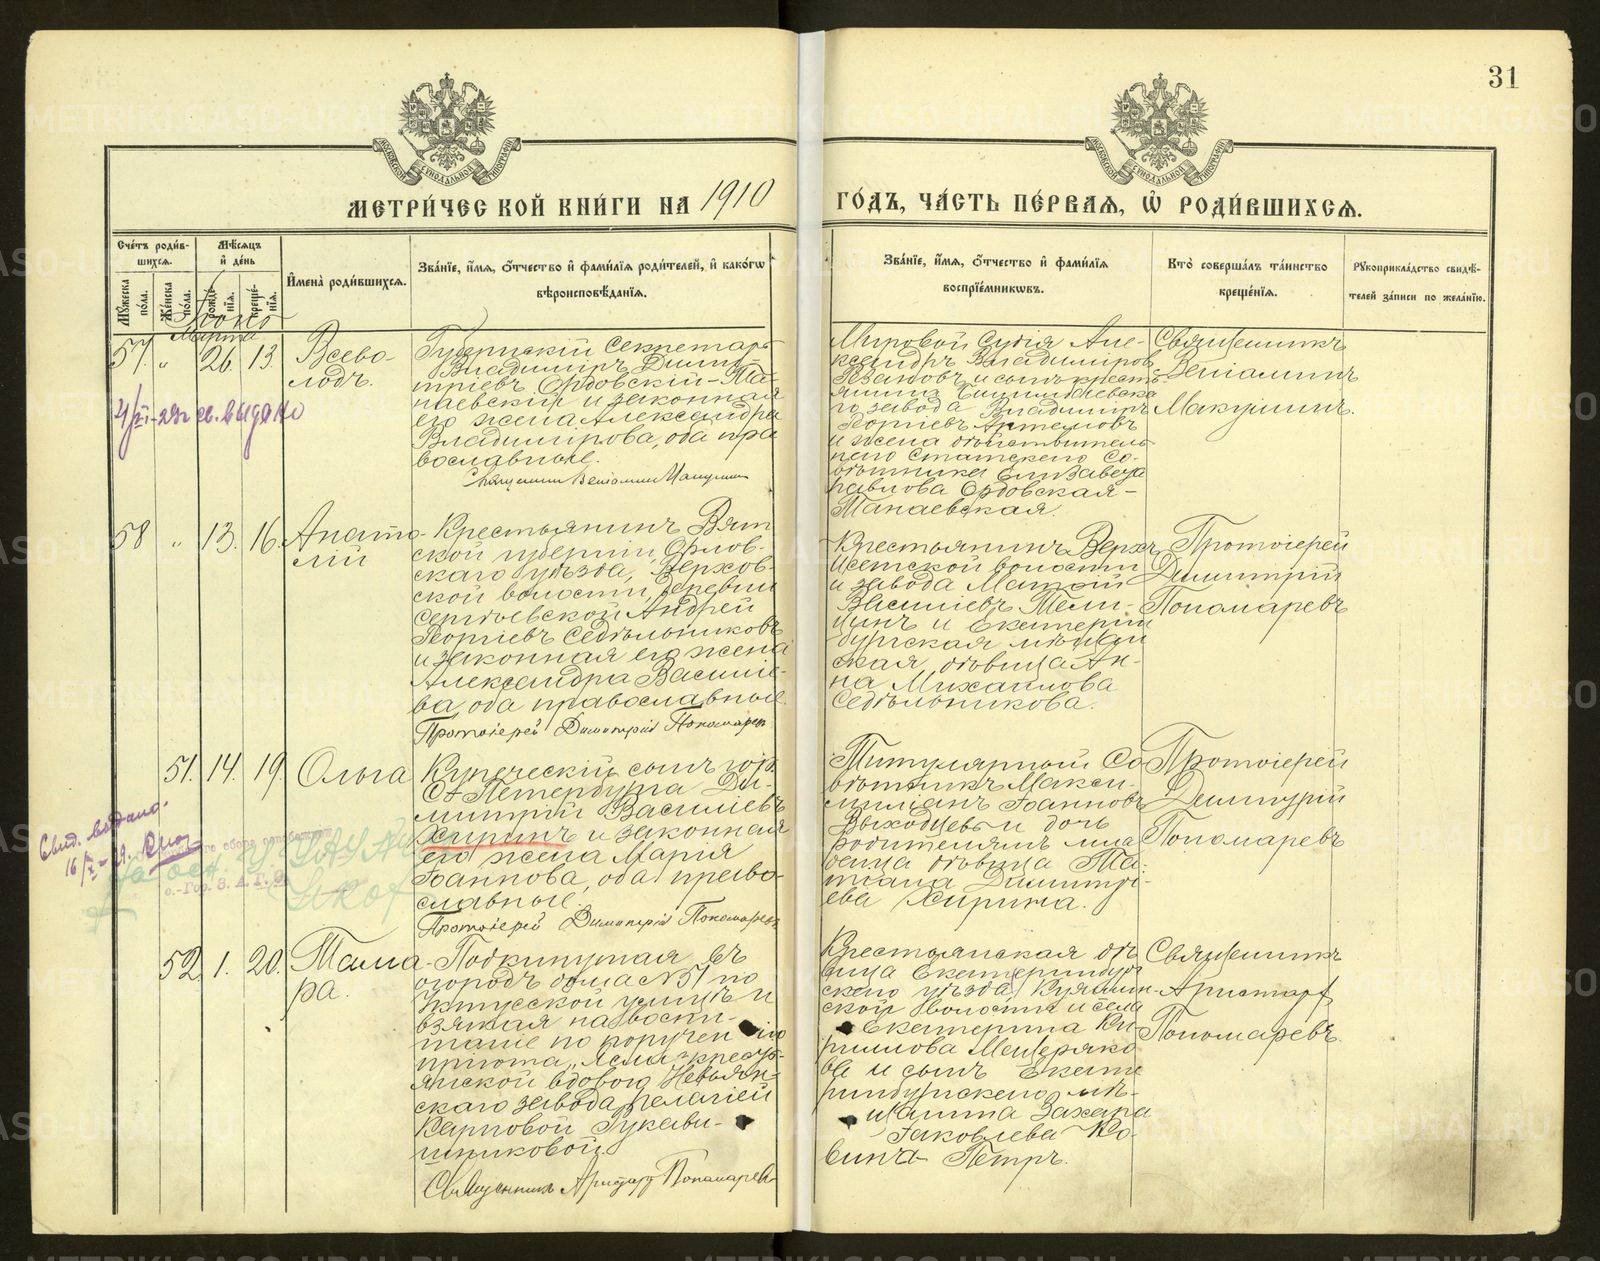 31
МЕТРИЧЕСКОЙ КНИГИ НА 1910 ГОДЪ, ЧАСТЬ ПЕРВАЯ, Ѡ РОДИВШИХСЯ.
Счетъ родив-
шихся.
Мѣсяцъ
и день
Мужеска
пола.
Женска
пола.
рожде-
нія.
креще-
нія.
Имена родившихся.
Званіе, имя, отчество и фамилія родителей, и какогѡ
вѣроисповѣданія.
Званіе, имя, отчество и фамилія
воспріемникѡвъ.
Кто совершалъ таинство
крещенія.
Рукоприкладство свидѣ-
телей записи по желанію.
Марта
57. „ 26. 13. Всево-
лодъ.
Губернскій Секретарь
Владиміръ Дими-
тріевъ Ордовскій-Та-
наевскій и законная
его жена Александра
Владимірова, оба пра
вославные.
Священникъ Веніаминъ Макушинъ
Мировой Судія Але-
ксандръ Владиміров
Ивановъ и сынъ крестъ
го завода Владиміръ
Георгіевъ Артемовъ
и жена дѣйствитель
наго Статскаго Со-
вѣтника Елизавета
Павлова Ордовская-
Танаевская.
Священникъ
Веніаминъ
Макушинъ.
св. выдано
58 „ 13. 16. Анато-
лій
Крестьянинъ Вят
ской губерніи, Орлов-
скаго уѣзда, Верхов-
ской волости, деревни
Сергѣевской Андрей
Георгіевъ Седѣльниковъ
и законная его жена
Александра Василіе-
ва, оба православные.
Протоіерей Димитрій Пономаревъ
Крестьянинъ Верхъ
Исетской волости
и завода Матѳій
Василіевъ Мели-
цинъ и Екатерин
бургская мѣщан
ская дѣвица Ан-
на Михаилова
Седѣльникова.
Протоіерей
Димитрій
Пономаревъ
51. 14. 19. Ольга
Купеческій сынъ гор.
С. Петербурга Ди-
митрій Василіевъ
Хиринъ и законная
его жена Марія
Іоаннова, оба право-
славные.
Протоіерей Димитрій Пономаревъ
Титулярный Со
вѣтникъ Макси-
миліанъ Іоанновъ
Выходцевъ и дочь
родителямъ мла
денца дѣвица Та-
тіана Димитрі-
ева Хирина.
Протоіерей
Димитрій
Пономаревъ
Свид. выдано
52. 1. 20. Тама-
ра.
Подкинутая въ
огородъ дома № 51 по
Уктусской улицѣ и
взятая на воспи-
таніе по порученію
пріюта „Ясли" кресть-
янской вдовою Невьян-
скаго завода Пелагіей
Карповой Рукави-
шниковой.
Священникъ Аристархъ Пономаревъ
Крестьянская дѣ
вица Екатеринбург
скаго уѣзда, Куяшин-
ской волости и села
Екатерина Ки-
риллова Мещеряко
ва и сынъ Екате
ринбургскаго мѣ-
щанина Захара
Іаковлева Ко-
сина Петръ.
Священникъ
Аристархъ
Пономаревъ.
METRIKI.GASO-URAL.RU